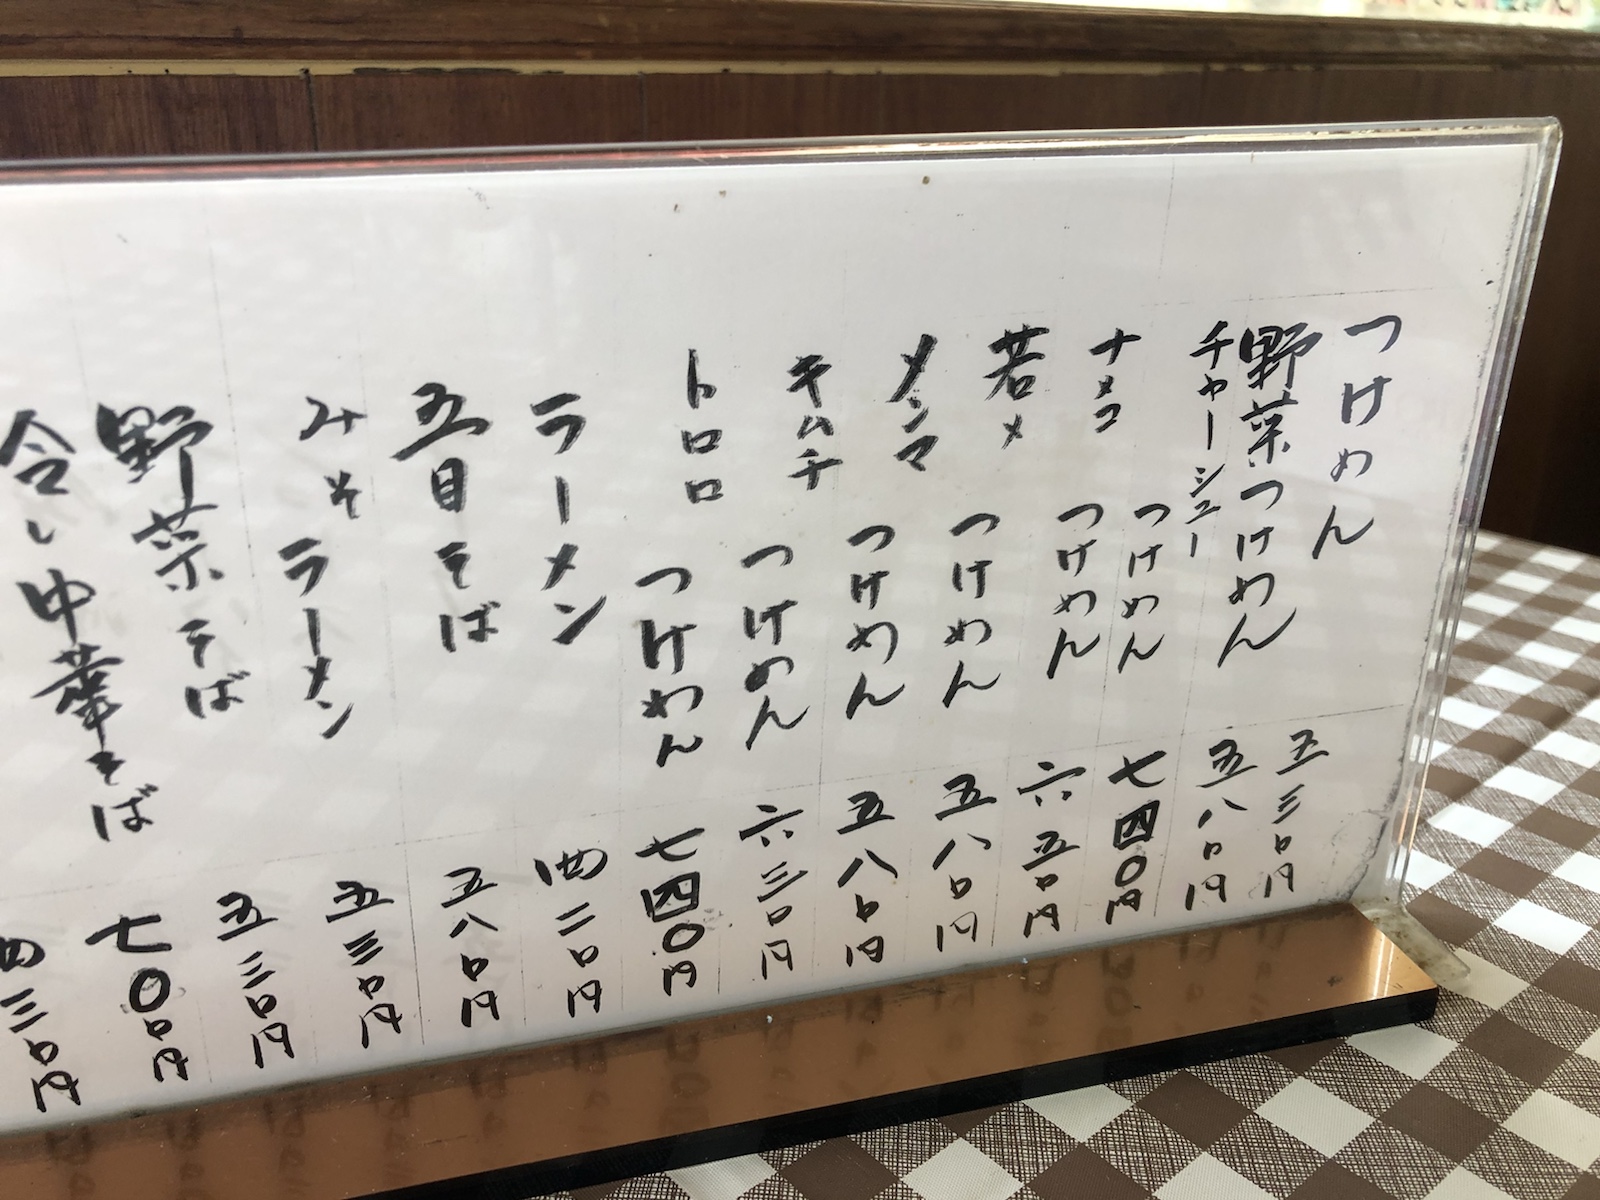 つけめん 五三〇円
野菜つけめん 五八〇円
チャーシューつけめん 七四〇円
ナメコつけめん 六五〇円
若メつけめん 五八〇円
メンマつけめん 五八〇円
キムチつけめん 六三〇円
トロロつけめん 七四〇円
ラーメン 四二〇円
五目そば 五八〇円
みそラーメン 五三〇円
野菜そば 五三〇円
冷し中華そば 七〇〇円
四三〇円